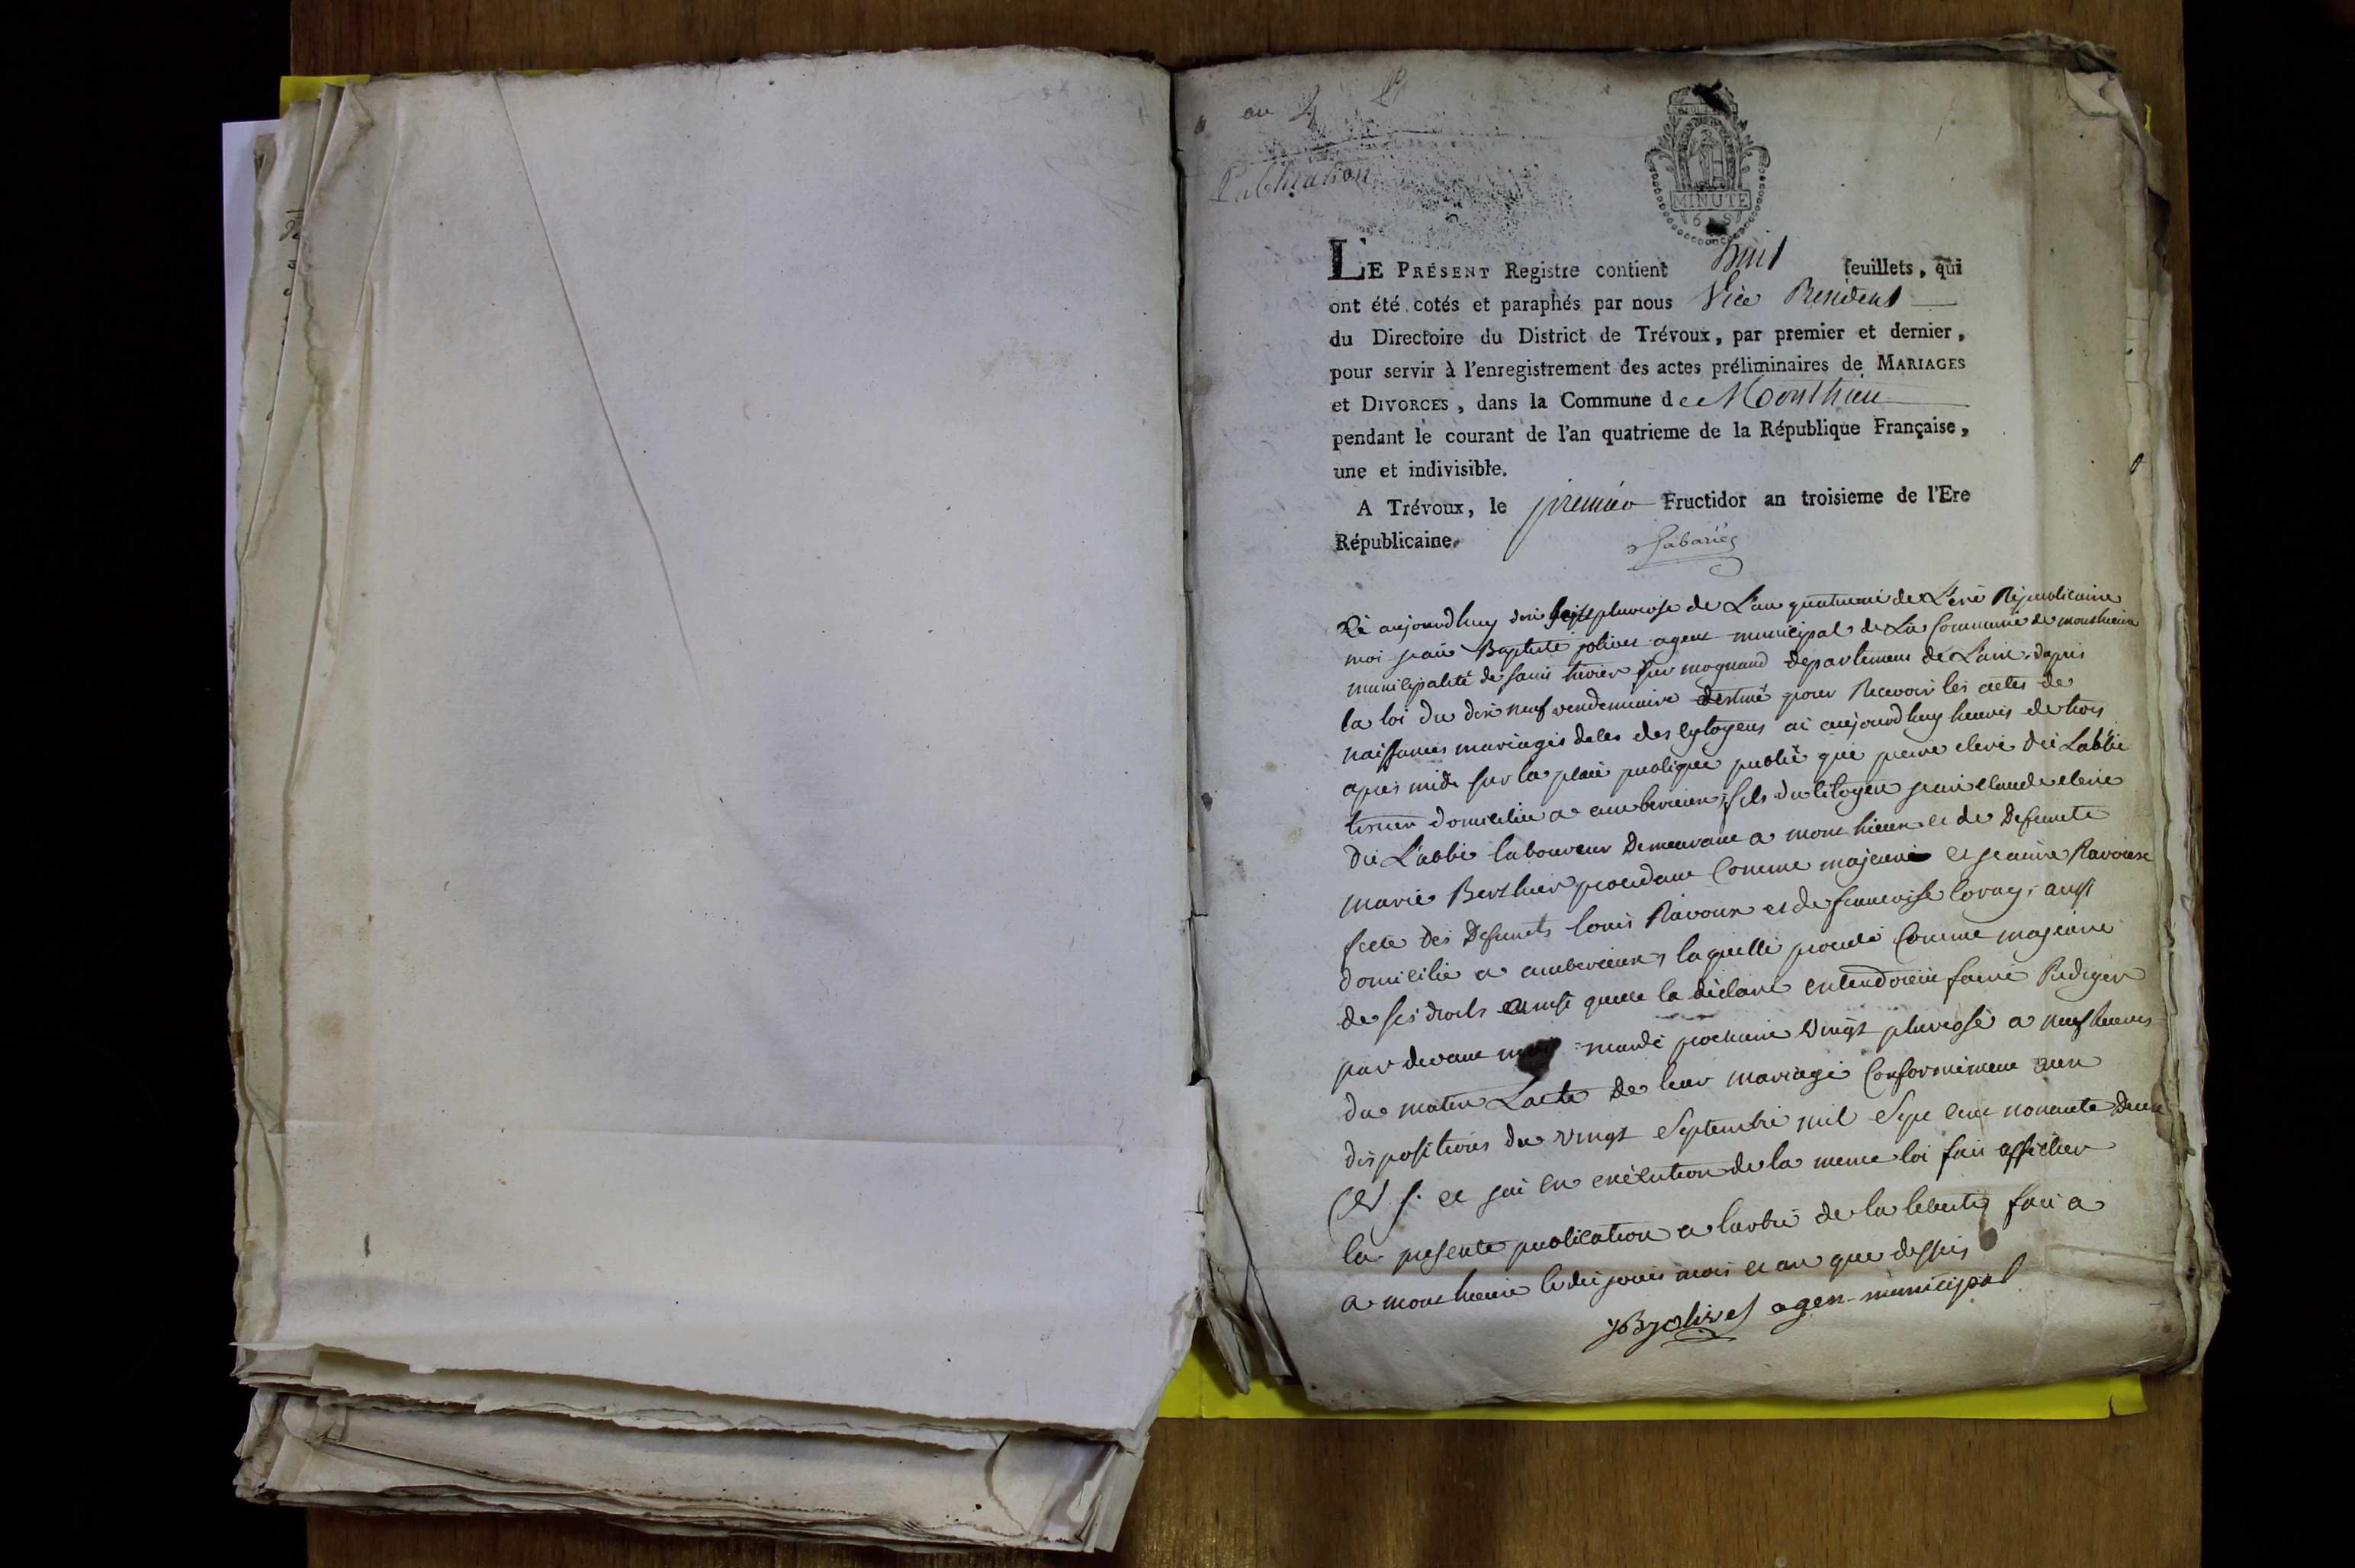 an 4
Publication
MINUTE
LE PRÉSENT Registre contient huit feuillets, qui
ont été cotés et paraphés par nous Vice President
du Directoire du District de Trévoux, par premier et dernier,
pour servir à l'enregistrement des actes préliminaires de MARIAGES
et DIVORCES, dans la Commune de Monthieu
pendant le courant de l'an quatrieme de la République Française,
une et indivisible.
A Trévoux, le premier Fructidor an troisieme de l'Ere
Républicaine.
aujourdhuy dix sept pluviose de L'an quatrieme de L'ere Republicaine
moi jean Baptiste jolivet agent municipal de La Commune de monthieux
municipalité de saint trivier sur mognand departement de L'ain, dapres
la loi du dix neuf vendemiaire destiné pour Recevoir les actes de
naissances mariages deces des Cytoyens ai aujourdhuy heures de trois
apres midi sur la place publique publié que pierre clerc dit Labbé
tisser domicilié a amberieux, fils du Citoyen jean claude clerc
dit L'abbé laboureur demeurant a mont hieux et de defuncte
marie Berthier procedant Comme majeure et jeanne Ravoux
fille des defuncts louis Ravoux et de francoise loray, aussi
domicilié a amberieux, laquelle procede Comme majeure
de ses droits ainsi quelle la déclaré entendoient faire Rediger
par devant moi mardi prochain vingt pluviose a neuf heures
du matin Lacte de leur mariage Conformement aux
dispositions du vingt Septembre mil Sept cent nonante deux
et jai en exécution de la meme loi fait afficher
la presente publication a larbre de la liberté, fait a
a mont hieux le dit jour mois et an que dessus
JB jolivet agen municipal